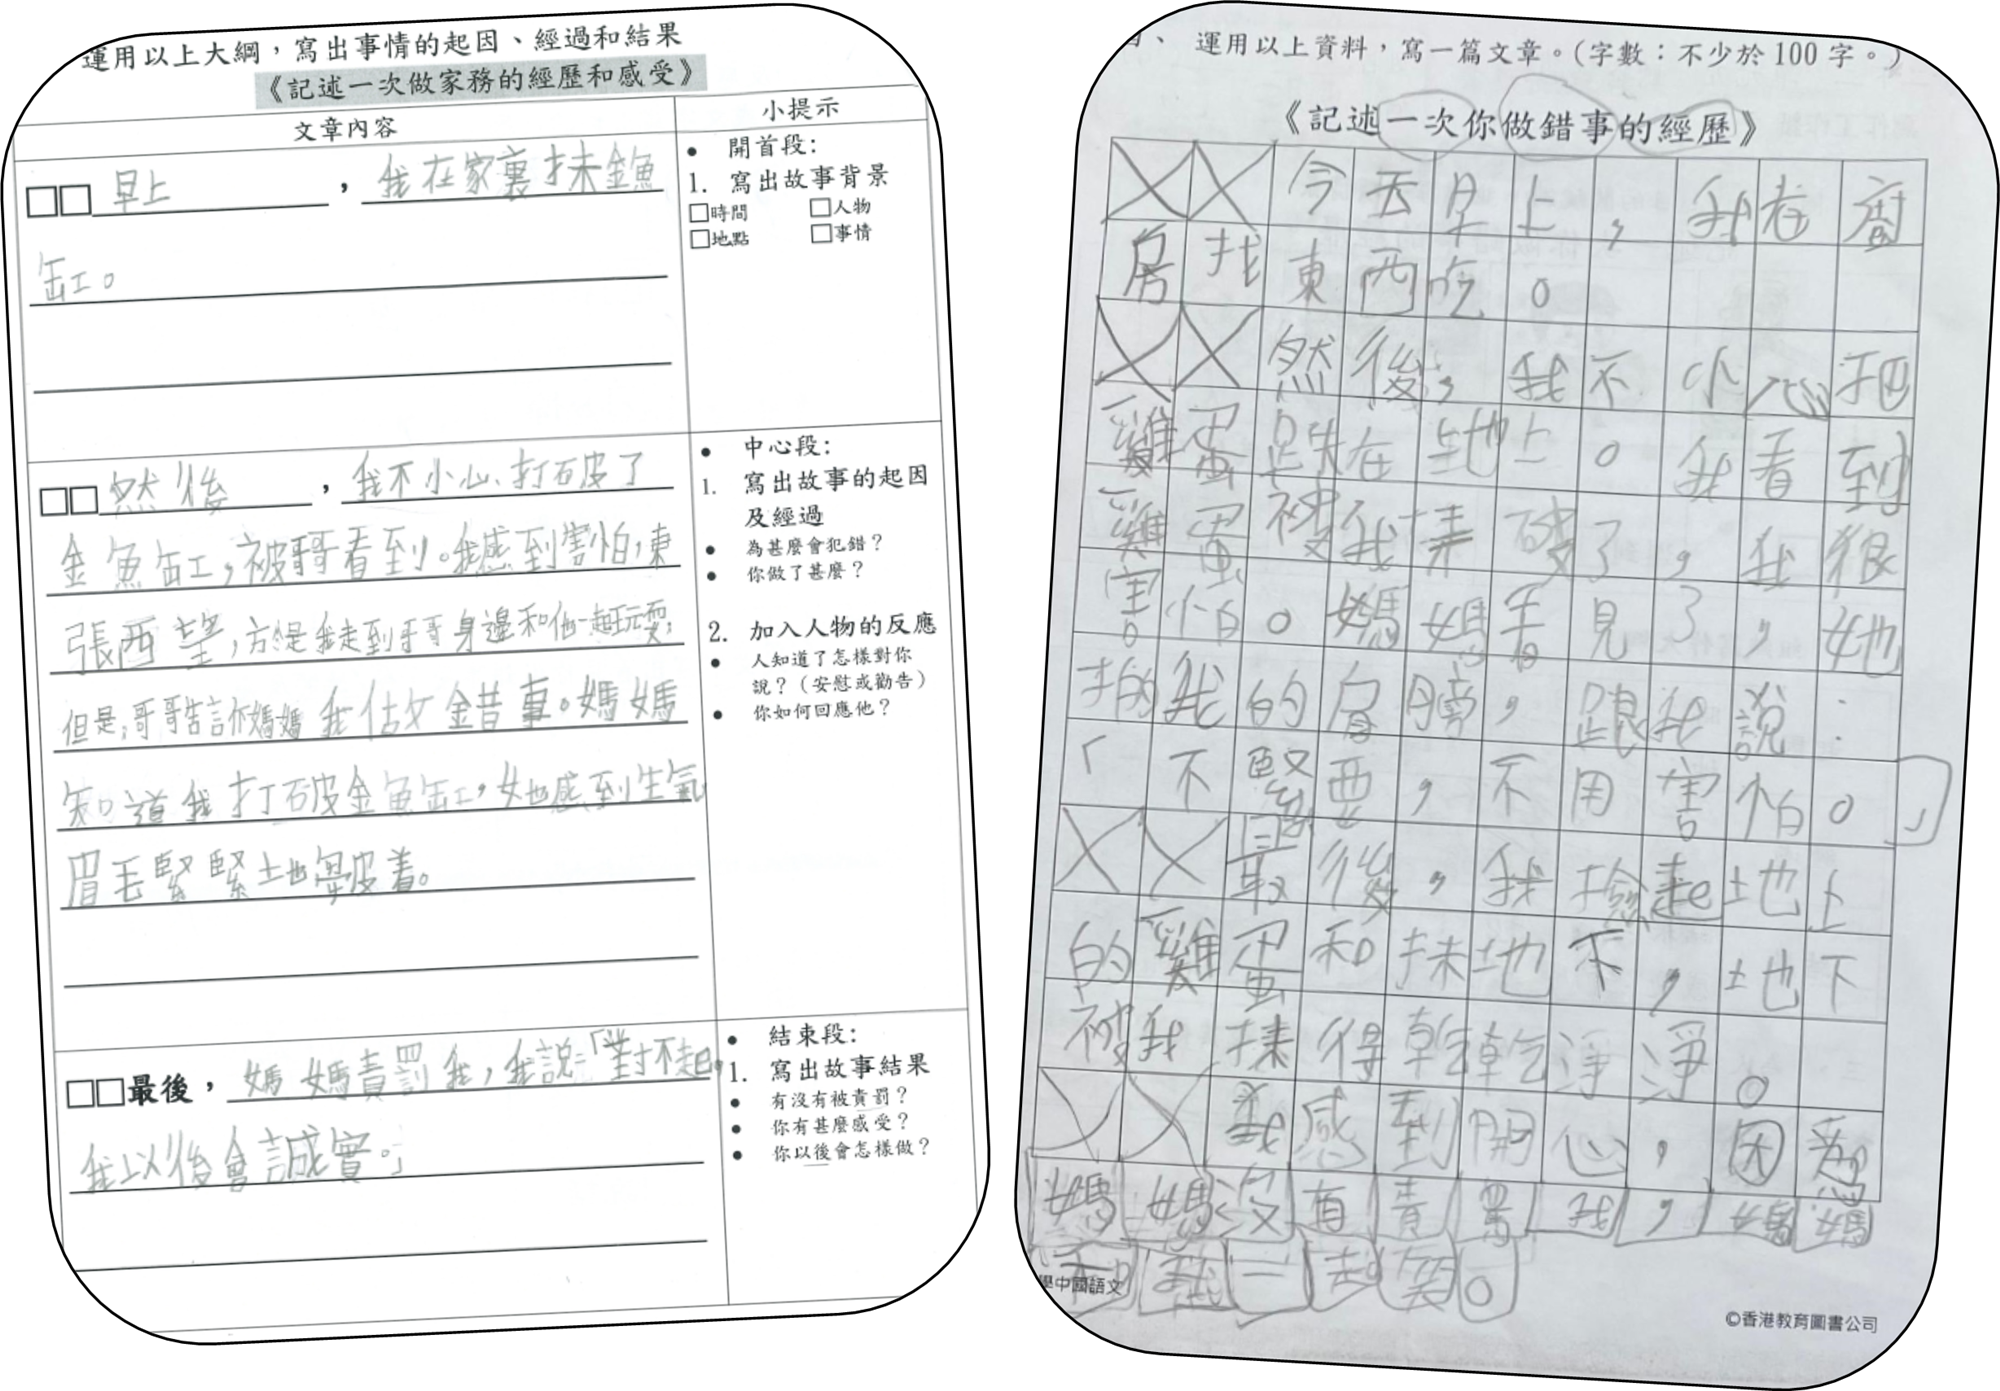 運用以上大綱，寫出事情的起因、經過和結果
《記述一次做家務的經歷和感受》
文章內容
小提示
□□早上，我在家裏抹金魚
缸。
開首段：
1. 寫出故事背景
□時間 □人物
□地點 □事情
□□然後，我不小心打破了
金魚缸，被哥哥看到。我感到害怕，東
張西望，於是我走到哥哥身邊和他一起玩耍，
但是，哥哥告訴媽媽我做錯事。媽媽
知道我打破金魚缸，她感到生氣
眉毛緊緊地皺着。
中心段：
1. 寫出故事的起因
及經過
為甚麼會犯錯？
你做了甚麼？
2. 加入人物的反應
人知道了怎樣對你
說？（安慰或勸告）
你如何回應他？
□□最後，媽媽責罰我，我說：「對不起，
我以後會誠實。」
結束段：
1. 寫出故事結果
有沒有被責罰？
你有甚麼感受？
你以後會怎樣做？
、運用以上資料，寫一篇文章。（字數：不少於100字。）
《記述一次你做錯事的經歷》
今天早上，我在廚
房找東西吃。
然後，我不小心把
雞蛋跌在地上。我看到
雞蛋被我揀破了，我很
害怕。媽媽看見了，她
拍我的肩膀，跟我說：
「不緊要，不用害怕。」
最後，我撿起地上
的雞蛋和抹地下，地下
被我抹得乾乾淨淨。
我感到開心，因為
媽媽沒有責罵我，媽媽
和我一起笑。
學中國語文
©香港教育圖書公司